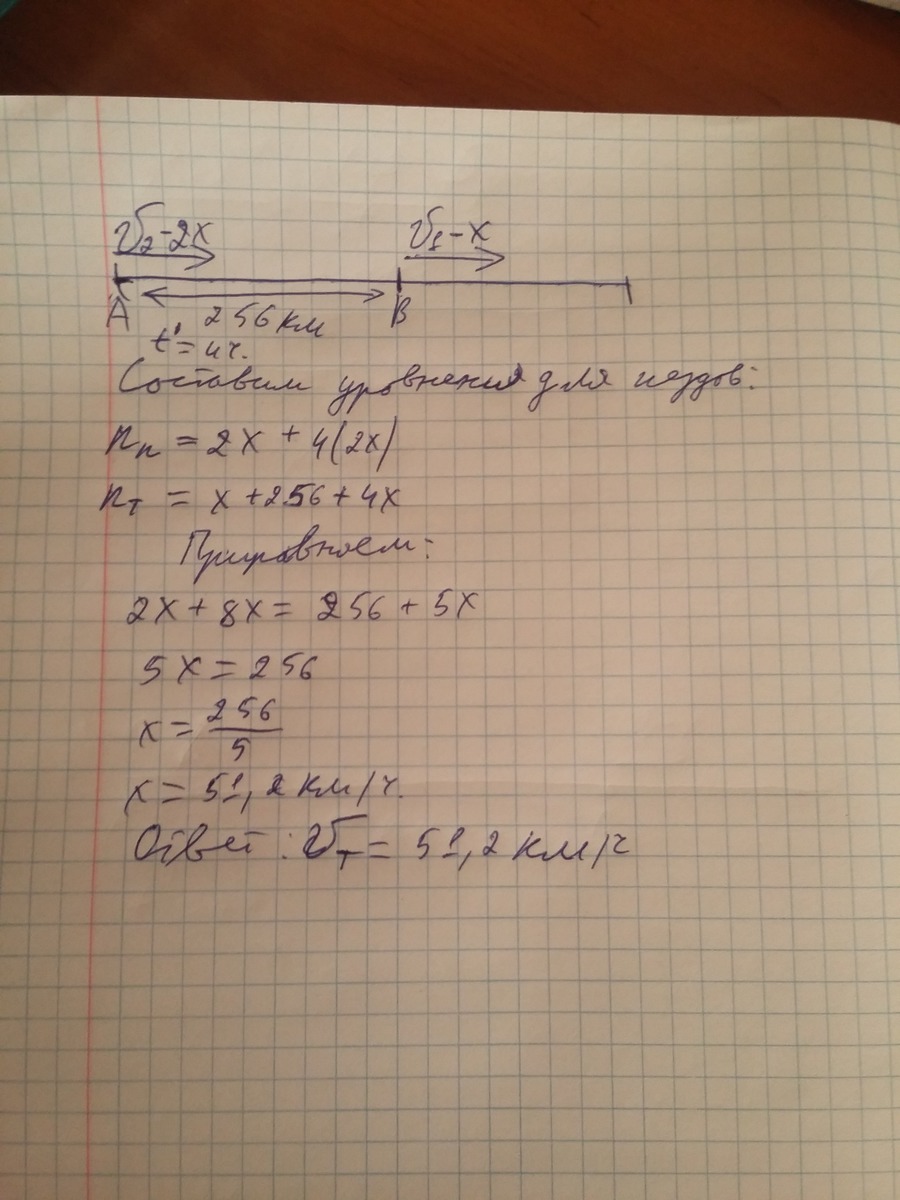 V₂-2x V₁-x
A B
256 км
t' = 4ч.
Составим уровнения для поездов:
Пₙ = 2x + 4(2x)
Пₜ = x + 256 + 4x
Прировняем:
2x + 8x = 256 + 5x
5x = 256
x = 256/5
x = 51,2 км/ч.
Ответ: Vₜ = 51,2 км/ч